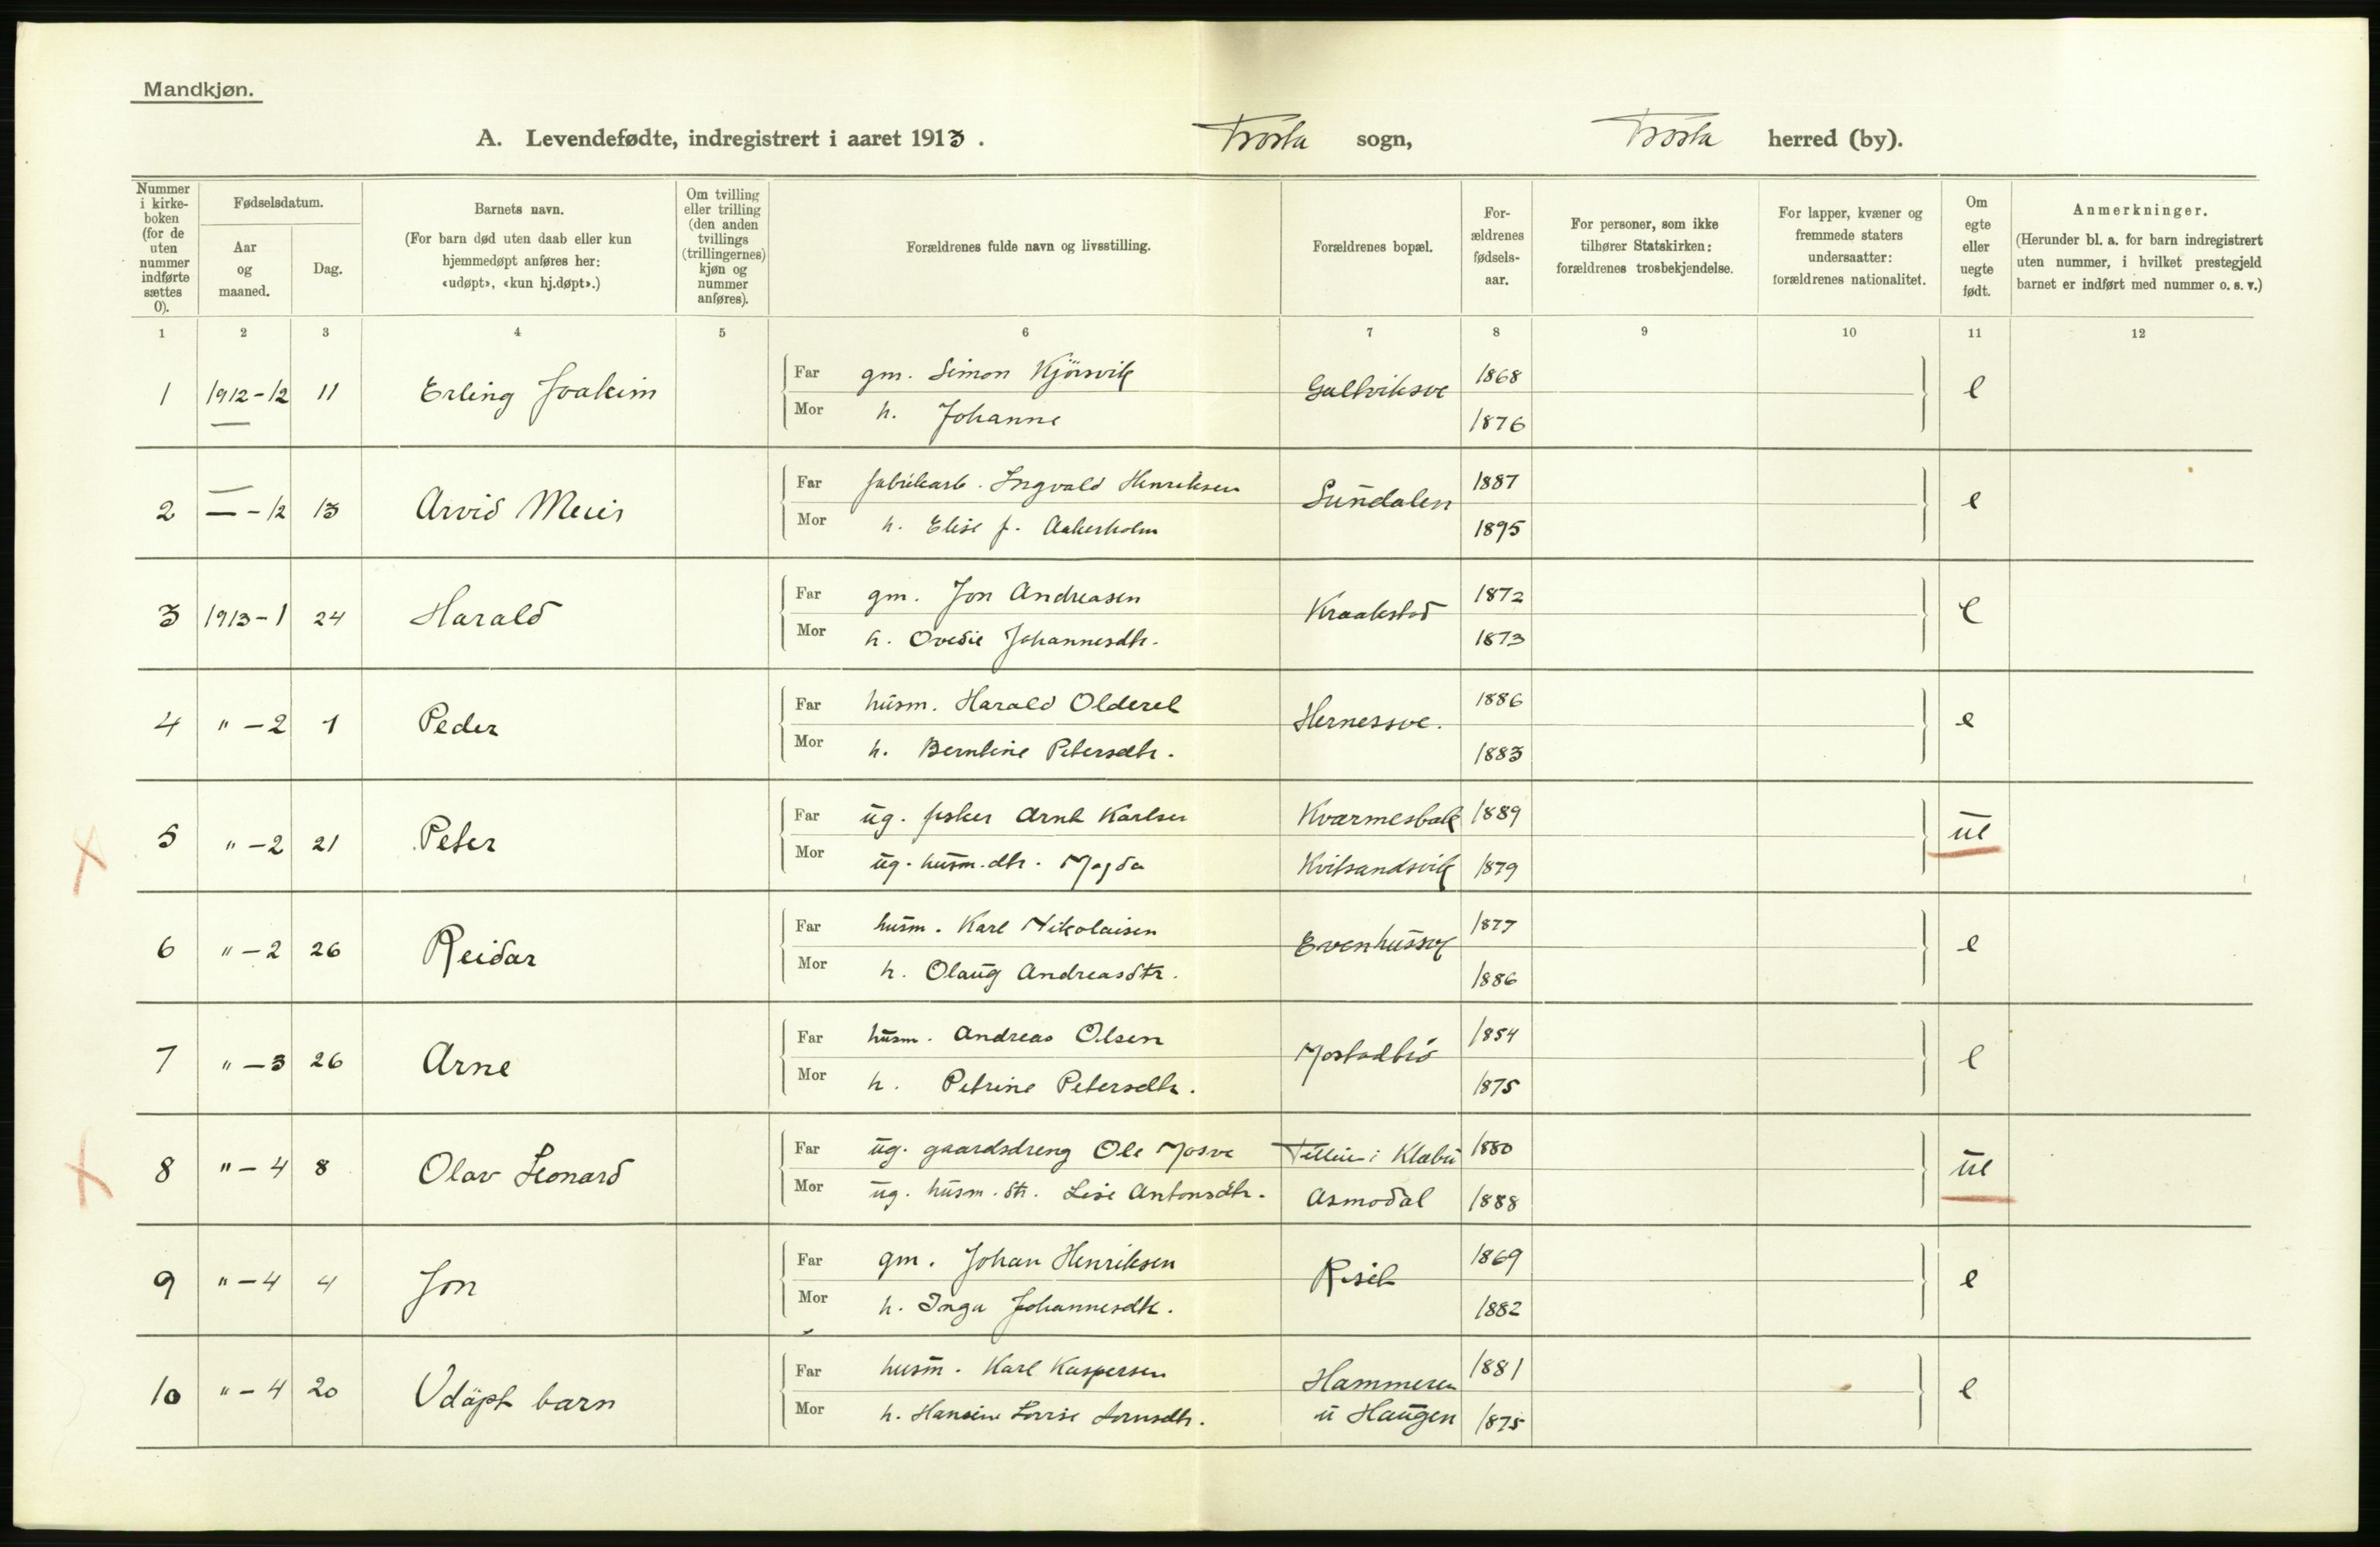 Mandkjøn.
A. Levendefødte, indregistrert i aaret 1913. Frosta sogn, Frosta herred (by).
Nummer i kirke-boken (for de uten nummer indførte sættes 0).
Fødselsdatum.
Aar og maaned.
Dag.
Barnets navn.
(For barn død uten daab eller kun hjemmedøpt anføres her: «udøpt», «kun hj.døpt».)
Om tvilling eller trilling (den anden tvillings (trillingernes) kjøn og nummer anføres).
Forældrenes fulde navn og livsstilling.
Forældrenes bopæl.
For-ældrenes fødsels-aar.
For personer, som ikke tilhører Statskirken: forældrenes trosbekjendelse.
For lapper, kvæner og fremmede staters undersaatter: forældrenes nationalitet.
Om egte eller uegte født.
Anmerkninger.
(Herunder bl. a. for barn indregistrert uten nummer, i hvilket prestegjeld barnet er indført med nummer o. s. v.)
1 2 3 4 5 6 7 8 9 10 11 12
1 1912-12 11 Erling Joakim Far gm. Simon Kjörsvik Galtviksve 1868 e
Mor h. Johanne 1876
2 — - 12 13 Arvid Far fabrikarb. Ingvald Henriksen Sundalen 1887 e
Mor h. Elise f. Aakerholm 1895
3 1913-1 24 Harald Far gm. Jon Andreasen Kraakstad 1872 e
Mor h. Ovedie Johannesdtr. 1873
4 " - 2 1 Peder Far husm. Harald Hernessve. 1886 e
Mor h. Berntine Petersdtr. 1883
5 " - 2 21 Peter Far ug. fisker Arnt Karlsen 1889 ue
Mor ug. husm.dtr. Magda Kvitsandsvik 1879
6 " - 2 26 Reidar Far husm. Karl Nikolaisen Evenhussve 1877 e
Mor h. Olaug Andreasdtr. 1886
7 " - 3 26 Arne Far husm. Andreas Olsen 1854 e
Mor h. Petrine Petersdtr. 1875
8 " - 4 8 Olav Leonard Far ug. gaardsdreng Ole Mosve Tiller i Klæbu 1880 ue
Mor ug. husm.dtr. Lise Antonsdtr. Asmodal 1888
9 " - 4 4 Jon Far gm. Johan Henriksen 1869 e
Mor h. Inga Johannesdtr. 1882
10 " - 4 20 Udöpt barn Far husm. Karl Kaspersen Hammeren 1881 e
Mor h. u Haugen 1875